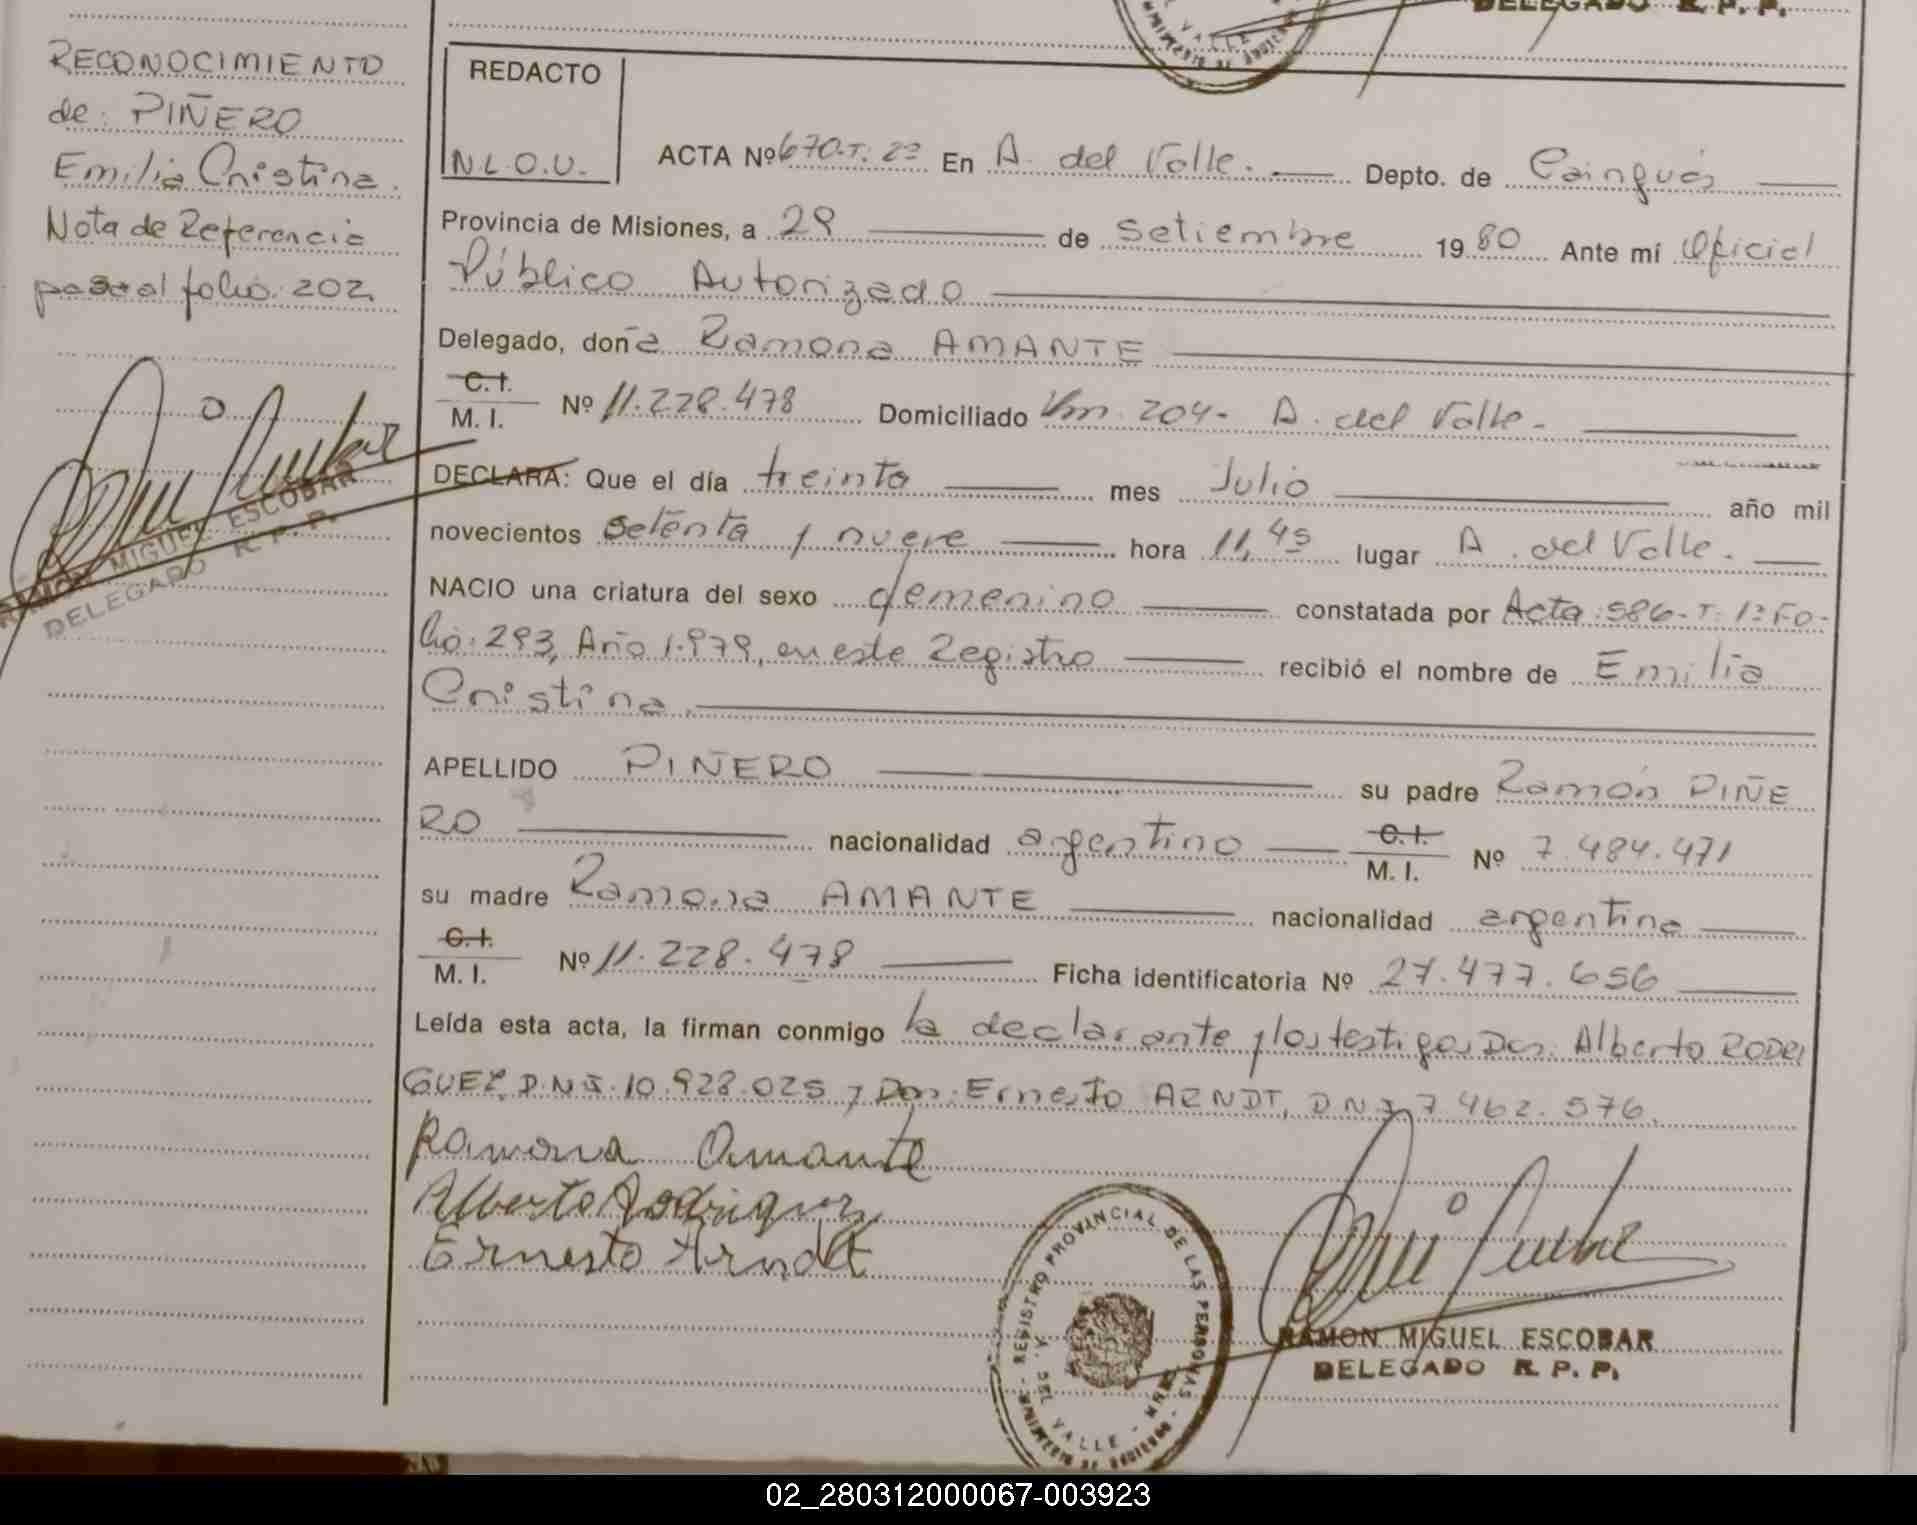 DELEGADO R. P. P.
RECONOCIMIENTO
de: PIÑERO
Emilia Cristina.
Nota de Referencia
pasa al folio 202.
RAMON MIGUEL ESCOBAR
DELEGADO R. P. P.
REDACTO
N.L.O.U.
ACTA Nº 670-T: 2º En A. del Valle. Depto. de Cainguás
Provincia de Misiones, a 29 de setiembre 1980 Ante mí Oficial
Público Autorizado
Delegado, doña Ramona AMANTE
C. I.
M. I. Nº 11.228.478 Domiciliado Km. 204- A. del Valle.-
DECLARA: Que el día treinta mes Julio año mil
novecientos setenta y nueve hora 11,45 lugar A. del Valle.
NACIO una criatura del sexo femenino constatada por Acta: 586-T: 1º Fo-
lio: 293, Año 1.979, en este Registro recibió el nombre de Emilia
Cristina.
APELLIDO PIÑERO su padre Ramón PIÑE
RO nacionalidad argentino C. I.
M. I. Nº 7.484.471
su madre Ramona AMANTE nacionalidad argentina
C. I.
M. I. Nº 11.228.478 Ficha identificatoria Nº 27.477.656
Leída esta acta, la firman conmigo la declarante y los testigos Don: Alberto RODRI
GUEZ, D.N.I. 10.928.025 y Don: Ernesto ARNDT, D.N.I. 7.462.576.
Ramona Amante
Alberto Rodriguez
Ernesto Arndt
REGISTRO PROVINCIAL DE LAS PERSONAS - MINISTERIO DE GOBIERNO -
A. DEL VALLE - MNES
RAMON MIGUEL ESCOBAR
DELEGADO R. P. P.
02_280312000067-003923